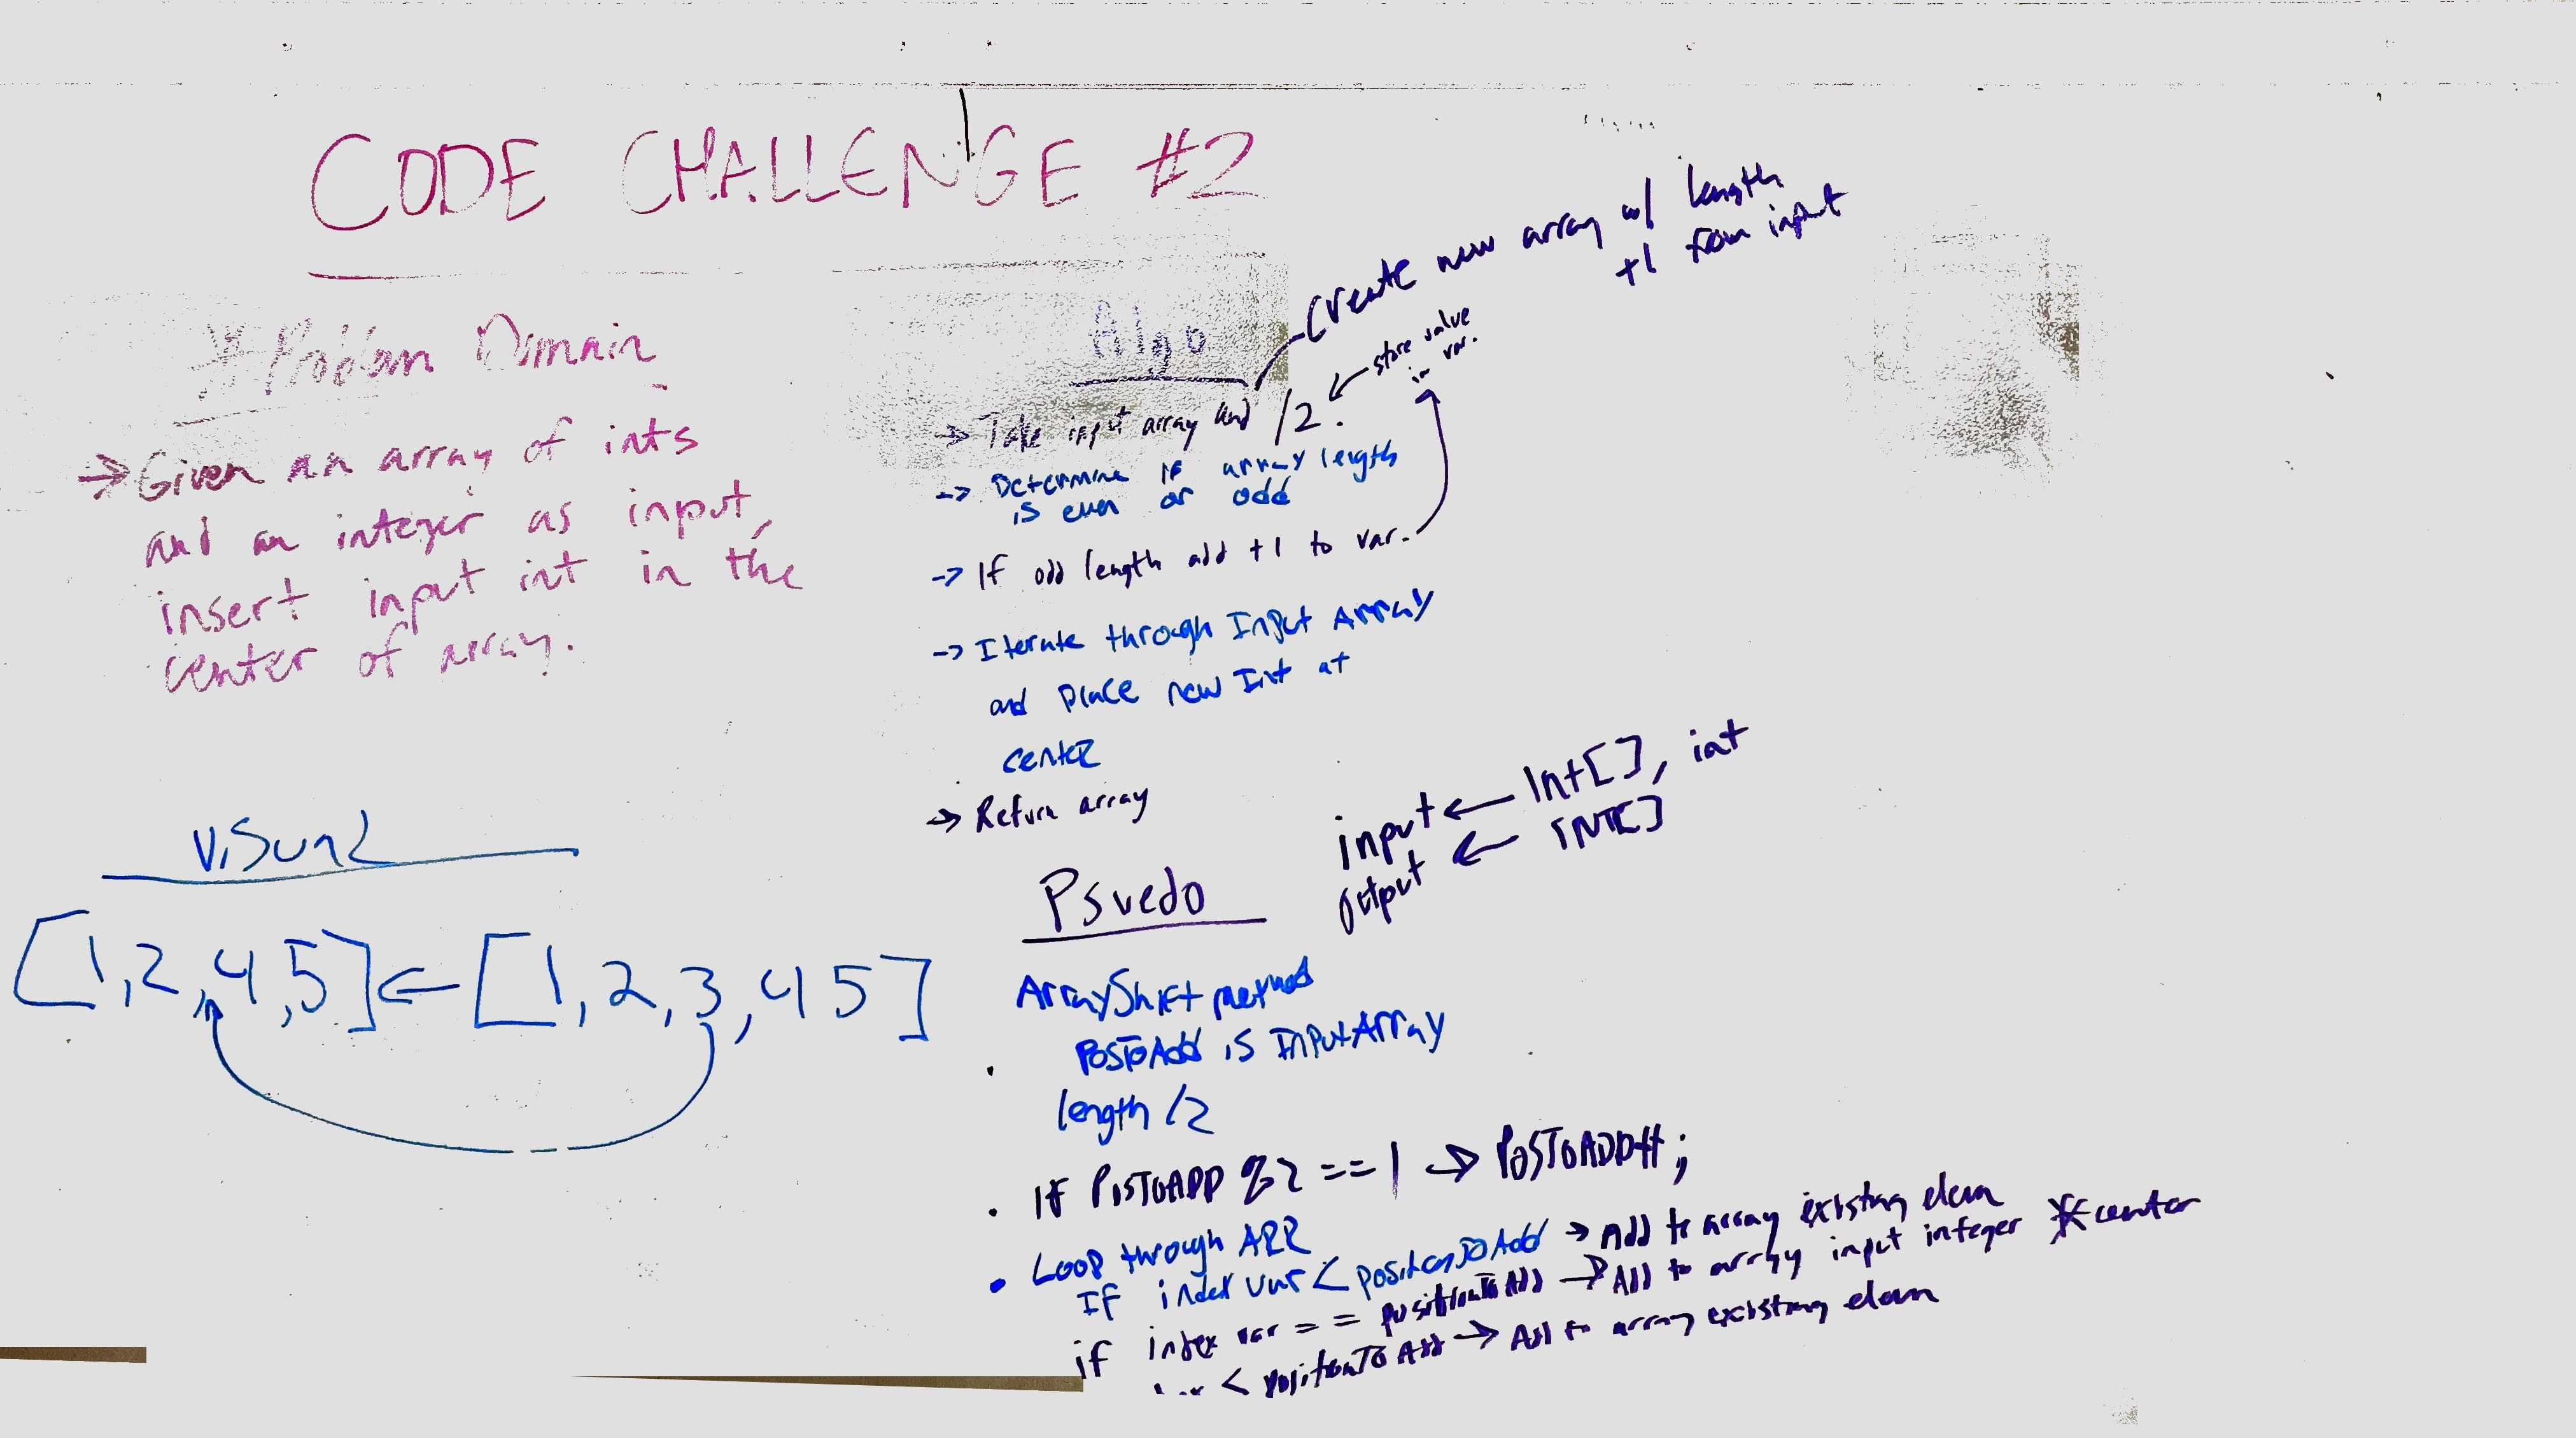 CODE CHALLENGE #2
Problem Domain
→ Given an array of ints
and an integer as input,
insert input int in the
center of array.
Visual
[1,2,4,5] ← [1,2,3,4 5]
Algo
Create new array w/ length
+1 from input
→ Take input array and /2. ← store value
in var.
→ Determine if array length
is even or odd
→ If odd length add +1 to var.
→ Iterate through Input Array
and place new Int at
center
→ Return array
input ← Int[], int
output ← INT[]
Psuedo
ArrayShift method
PosToAdd is InputArray
length /2
. If PosToADD %2 == 1 → PosToADD++;
• Loop through ARR
If index var < positonToAdd → Add to array existing elem
if index var == positionToAdd → Add to array input integer * center
< positionToAdd → Add to array existing elem